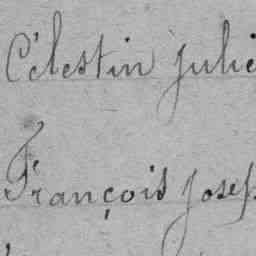 Célestin Julie
François Josep